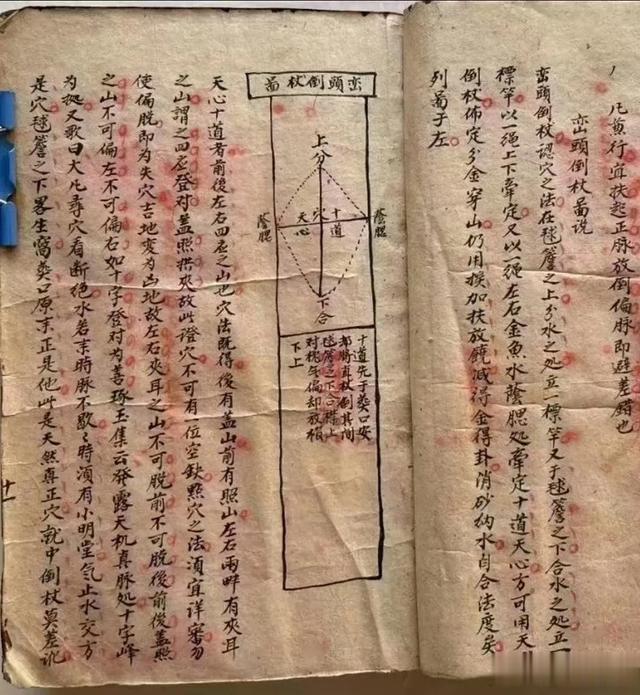 凡黄行宜扶起正脉放倒偏脉即避差錯也
峦頭倒杖啚説
峦頭倒杖認穴之法在毬簷之上分水之処立一標竿又于毬簷之下合水之処立一
標竿以一绳上下牽定又以一绳左右金魚水蔭腮処牽定十道天心方可用天
倒杖佈定分金穿山仍用挨加扶放饒減得金得卦消砂纳水自合法度矣
列啚于左
峦頭倒杖啚
上分
蔭腮
十道
穴
天心
蔭腮
下合
十道先于葬口安
却將直杖倒其间
毬簷之下合襟上
對栈無偏却放棺
下上
天心十道者前後左右四应之山也穴法既得後有盖山前有照山左右兩畔有夾耳
之山謂之四应登对盖照拱夾故此證穴不可有一位空缺㸃穴之法須宜详審勿
使偏脱即为失穴吉地变为凶地故左右夾耳之山不可脱前不可脱後前後盖照
之山不可偏左不可偏右如十字登对为善琢玉集云發露天机真脉処十字峰
为拠又歌曰大凡尋穴看断绝水若来時脉不歇歇時須有小明堂气止水交方
是穴毬簷之下畧生窩葬口原来正是他此是天然真正穴就中倒杖莫差訛
十一